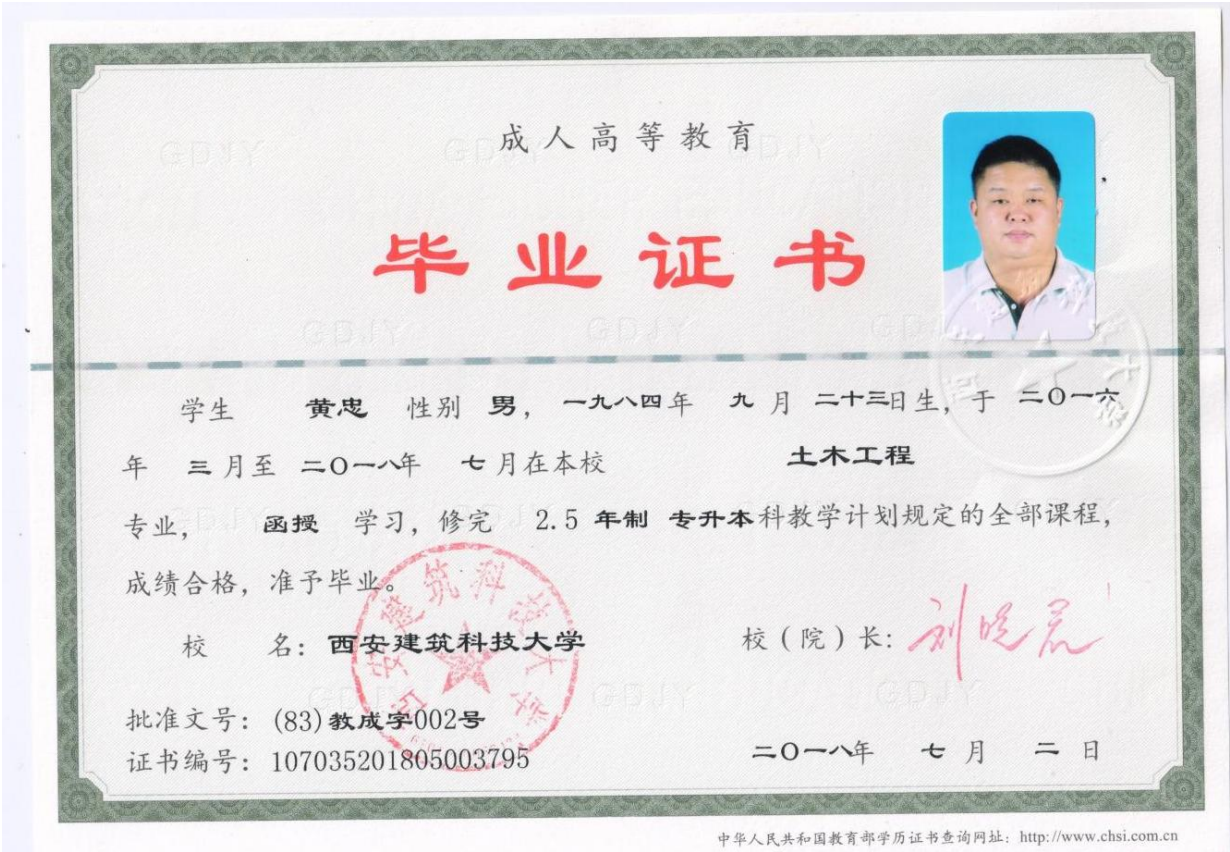 成人高等教育
毕业证书
学生 黄忠 性别 男， 一九八四年 九 月 二十三日生，于 二〇一六
年 三月至 二〇一八年 七月在本校 土木工程
专业， 函授 学习，修完 2.5 年制 专升本科教学计划规定的全部课程，
成绩合格，准予毕业。
校 名：西安建筑科技大学 校（院）长：刘晓君
西安建筑科技大学
批准文号：(83)教成字002号
证书编号：107035201805003795 二〇一八年 七 月 二 日
中华人民共和国教育部学历证书查询网址：http://www.chsi.com.cn
GDJY
GDJY
GDJY
GDJY
GDJY
GDJY
GDJY
GDJY